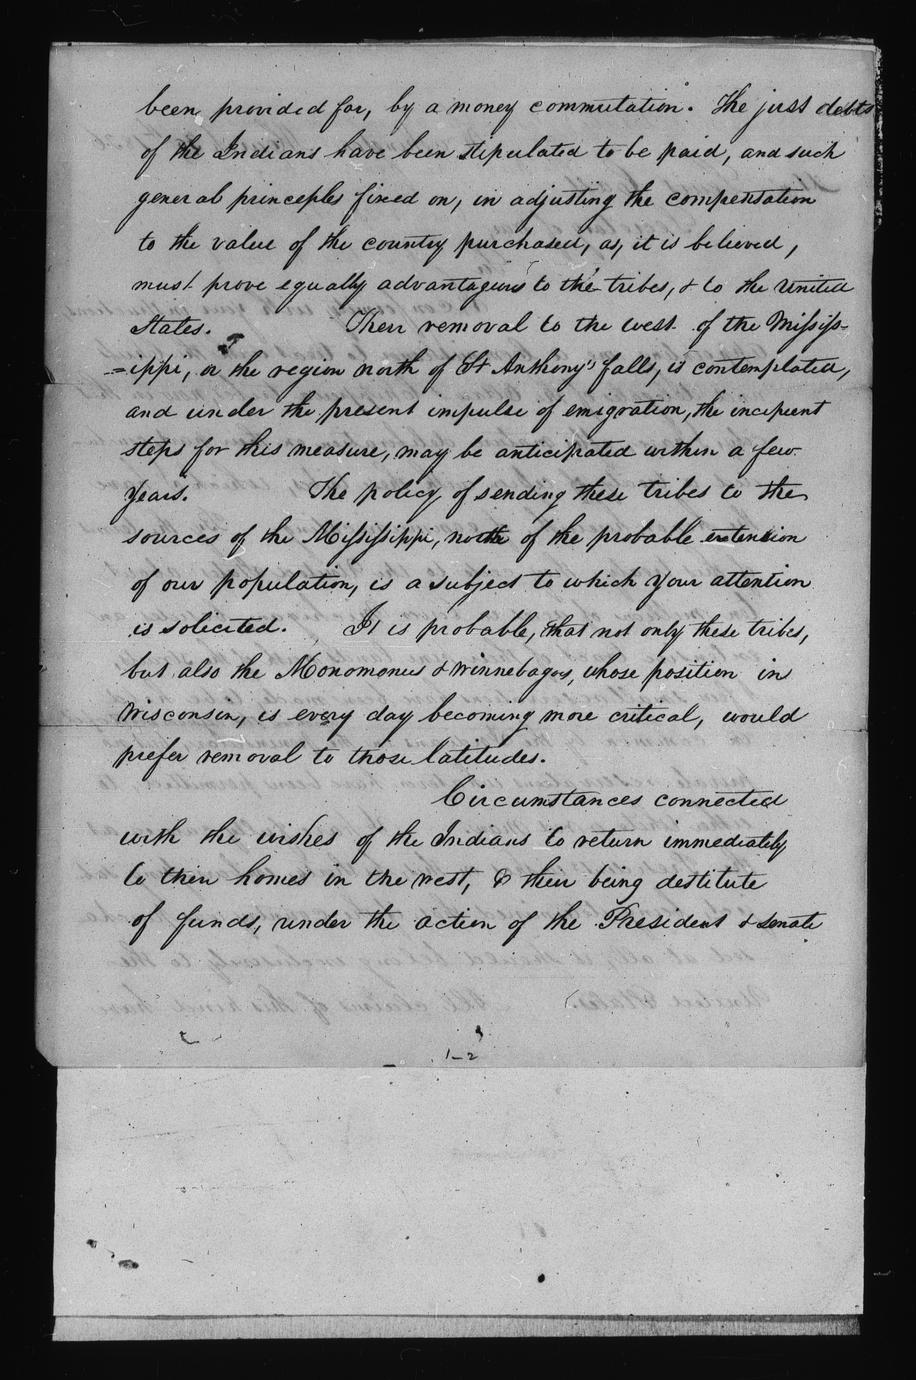 been provided for, by a money commutation. The just debts
of the Indians have been stipulated to be paid, and such
general principles fixed on, in adjusting the compensation
to the value of the country purchased, as, it is believed,
must prove equally advantageous to the tribes, & to the United
States. Their removal to the west of the Mississ-
=ippi, or the region north of St Anthony's falls, is contemplated,
and under the present impulse of emigration, the incipient
steps for this measure, may be anticipated within a few
years. The policy of sending these tribes to the
sources of the Mississippi, north of the probable extension
of our population, is a subject to which your attention
is solicited. It is probable, that not only these tribes,
but also the Monomonies & Winnebagos, whose position in
Wisconsin, is every day becoming more critical, would
prefer removal to those latitudes.
Circumstances connected
with the wishes of the Indians to return immediately
to their homes in the west, & their being destitute
of funds, under the action of the President & Senate
1-2